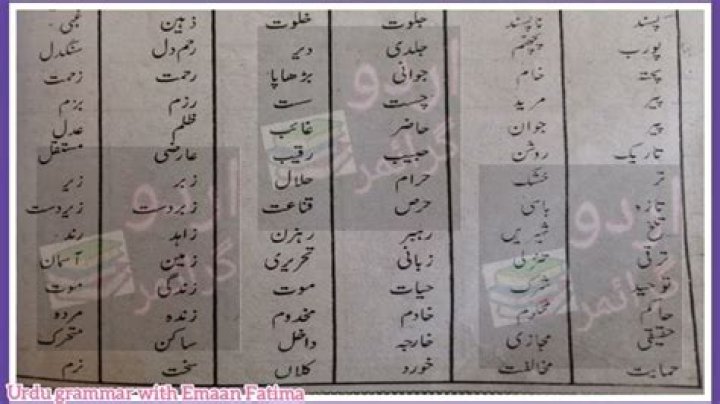 پسند ناپسند جلوت خلوت ذہین غبی
پورب پچھم جلدی دیر رحم دل سنگدل
پختہ خام جوانی بڑھاپا رحمت زحمت
پیر مرید چست سست رزم بزم
پیر جوان حاضر غائب ظلم عدل
تاریک روشن حبیب رقیب عارضی مستقل
تر خشک حرام حلال زبر زیر
تازہ باسی حرص قناعت زبردست زیردست
تلخ شیریں رہبر رہزن زاہد رند
ترقی تنزلی زبانی تحریری زمین آسمان
توحید شرک حیات موت زندگی موت
حاکم محکوم خادم مخدوم زندہ مردہ
حقیقی مجازی خارجہ داخل ساکن متحرک
حمایت مخالفت خورد کلاں سخت نرم
اردو گرائمر
اردو گرائمر
اردو گرائمر
Urdu grammar with Emaan Fatima